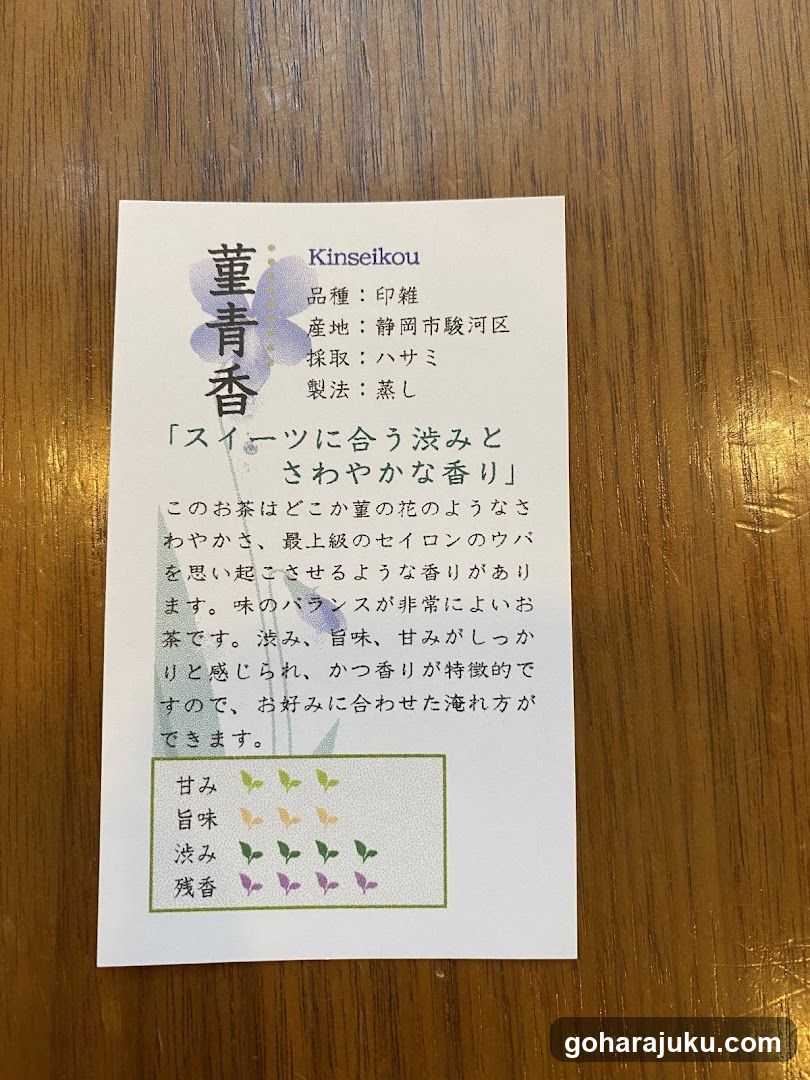 菫青香
Kinseikou
品種：印雑
産地：静岡市駿河区
採取：ハサミ
製法：蒸し
「スイーツに合う渋みと
さわやかな香り」
このお茶はどこか菫の花のようなさ
わやかさ、最上級のセイロンのウバ
を思い起こさせるような香りがあり
ます。味のバランスが非常によいお
茶です。渋み、旨味、甘みがしっか
りと感じられ、かつ香りが特徴的で
すので、お好みに合わせた淹れ方が
できます。
甘み
旨味
渋み
残香
goharajuku.com